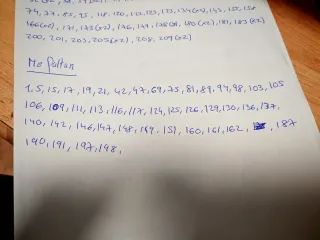 74, 77, 85, 95, 118, 120, 122, 125, 133, 134(x2), 143, 155, 156
166(x2), 171, 173(x2), 176, 179, 178(x2), 180(x2), 181, 183(x2)
200, 201, 203, 205(x2), 208, 209(x2)
Me faltan
1, 5, 15, 17, 19, 21, 42, 47, 69, 75, 81, 89, 94, 98, 103, 105
106, 109, 111, 113, 116, 117, 124, 125, 126, 129, 130, 136, 137,
140, 142, 146, 147, 148, 149, 151, 160, 161, 162, 187
190, 191, 197, 198,